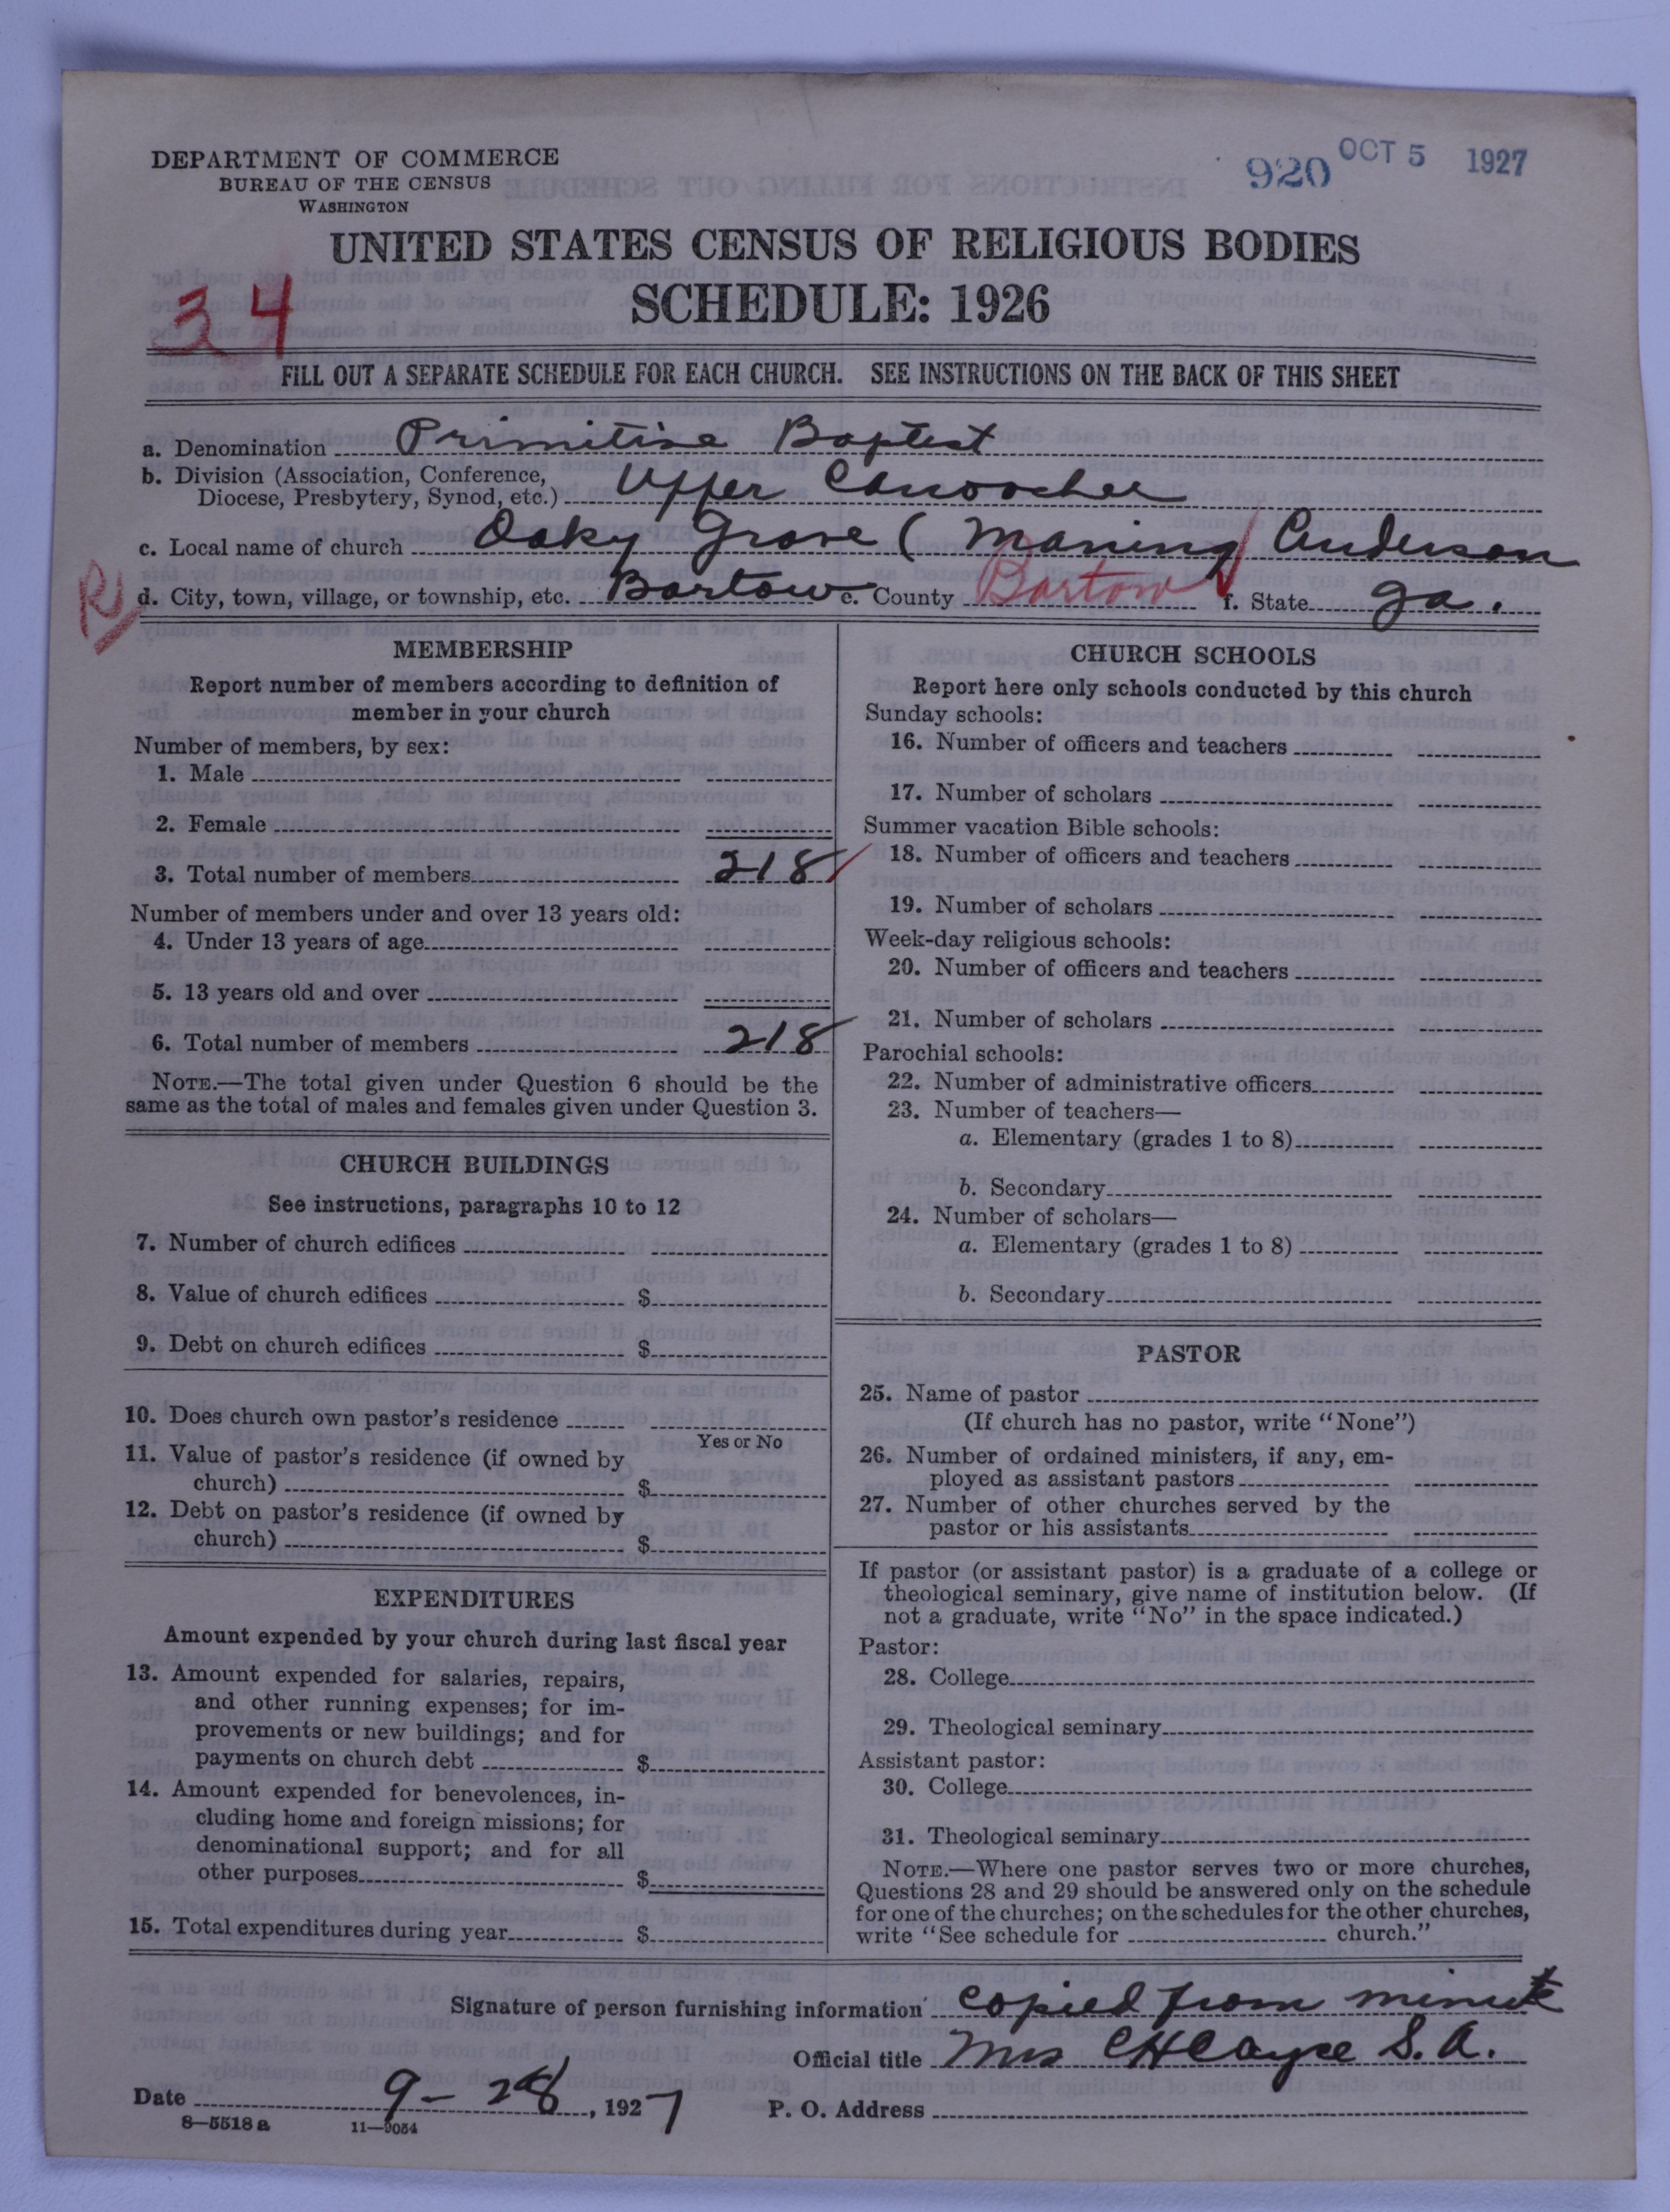 DEPARTMENT OF COMMERCE
BUREAU OF THE CENSUS
WASHINGTON
920 OCT 5 1927
UNITED STATES CENSUS OF RELIGIOUS BODIES
SCHEDULE: 1926
34
FILL OUT A SEPARATE SCHEDULE FOR EACH CHURCH. SEE INSTRUCTIONS ON THE BACK OF THIS SHEET
a. Denomination Primitive Baptist
b. Division (Association, Conference,
Diocese, Presbytery, Synod, etc.) Upper Canoochee
c. Local name of church Oaky Grove ( Maning Anderson
R
d. City, town, village, or township, etc. Bartow e. County Bartow f. State Ga.
MEMBERSHIP
Report number of members according to definition of
member in your church
Number of members, by sex:
1. Male
2. Female
3. Total number of members 218
Number of members under and over 13 years old:
4. Under 13 years of age
5. 13 years old and over
6. Total number of members 218
NOTE.—The total given under Question 6 should be the
same as the total of males and females given under Question 3.
CHURCH BUILDINGS
See instructions, paragraphs 10 to 12
7. Number of church edifices
8. Value of church edifices $
9. Debt on church edifices $
10. Does church own pastor's residence
Yes or No
11. Value of pastor's residence (if owned by
church) $
12. Debt on pastor's residence (if owned by
church) $
EXPENDITURES
Amount expended by your church during last fiscal year
13. Amount expended for salaries, repairs,
and other running expenses; for im-
provements or new buildings; and for
payments on church debt $
14. Amount expended for benevolences, in-
cluding home and foreign missions; for
denominational support; and for all
other purposes $
15. Total expenditures during year $
CHURCH SCHOOLS
Report here only schools conducted by this church
Sunday schools:
16. Number of officers and teachers
17. Number of scholars
Summer vacation Bible schools:
18. Number of officers and teachers
19. Number of scholars
Week-day religious schools:
20. Number of officers and teachers
21. Number of scholars
Parochial schools:
22. Number of administrative officers
23. Number of teachers—
a. Elementary (grades 1 to 8)
b. Secondary
24. Number of scholars—
a. Elementary (grades 1 to 8)
b. Secondary
PASTOR
25. Name of pastor
(If church has no pastor, write "None")
26. Number of ordained ministers, if any, em-
ployed as assistant pastors
27. Number of other churches served by the
pastor or his assistants
If pastor (or assistant pastor) is a graduate of a college or
theological seminary, give name of institution below. (If
not a graduate, write "No" in the space indicated.)
Pastor:
28. College
29. Theological seminary
Assistant pastor:
30. College
31. Theological seminary
NOTE.—Where one pastor serves two or more churches,
Questions 28 and 29 should be answered only on the schedule
for one of the churches; on the schedules for the other churches,
write "See schedule for church."
Signature of person furnishing information copied from minute
Official title Mrs C H Cayce S. A.
Date 9-28, 1927 P. O. Address
8—5518 a 11—9054